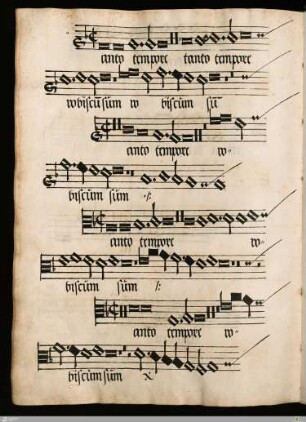 anto tempore tanto tempore
vobiscū sum vo biscum sū
anto tempore vo-
biscum sum ·/:
anto tempore vo-
biscum sum /:
anto tempore vo-
biscum sum x